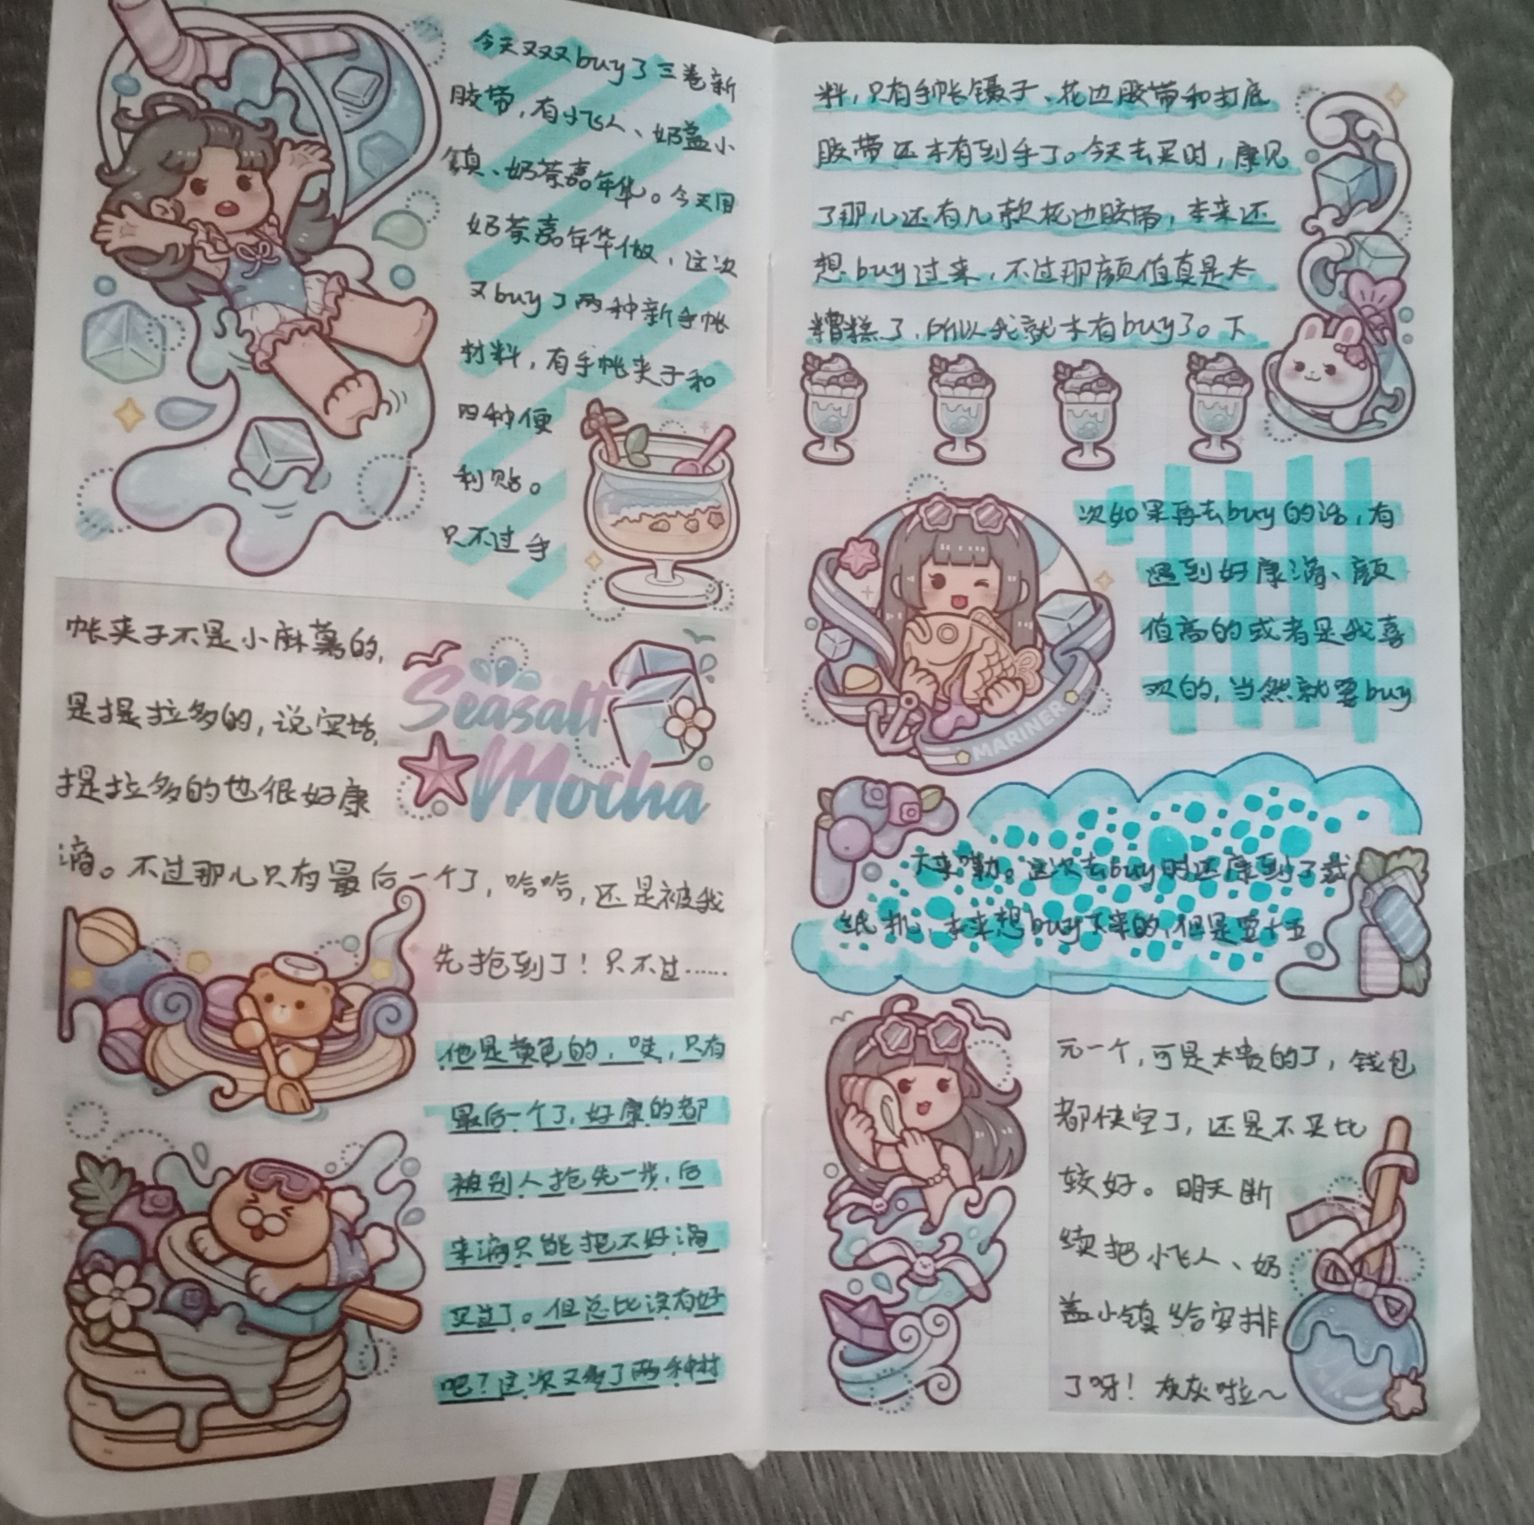 今天又双叒buy了三卷新
胶带，有小飞人、奶盖小
镇、奶茶嘉年华。今天用
奶茶嘉年华做，这次
又buy了两种新手帐
材料，有手帐夹子和
四种便
利贴。
只不过手
帐夹子不是小麻薯的，
是提拉多的，说实话，
提拉多的也很好康
滴。不过那儿只有最后一个了，哈哈，还是被我
先抢到了！只不过……
Seasalt
Mocha
他是黄色的，哎，只有
最后一个了，好康的都
被别人抢先一步，后
来滴只能把不好滴
买过了。但总比没有好
吧？这次又买了两种材
料，只有手帐镊子、花边胶带和打底
胶带还未有到手了。今天去买时，康见
了那儿还有几款花边胶带，本来还
想buy过来，不过那颜值真是太
糟糕了，所以我就未有buy了。下
MARINER
次如果再去buy的话，有
遇到好康滴、颜
值高的或者是我喜
欢的，当然就要buy
下来嘞。这次去buy时还康到了裁
纸机，本来想buy下来的，但是要十五
元一个，可是太贵的了，钱包
都快空了，还是不买比
较好。明天断
续把小飞人、奶
盖小镇给安排
了呀！灰灰啦～